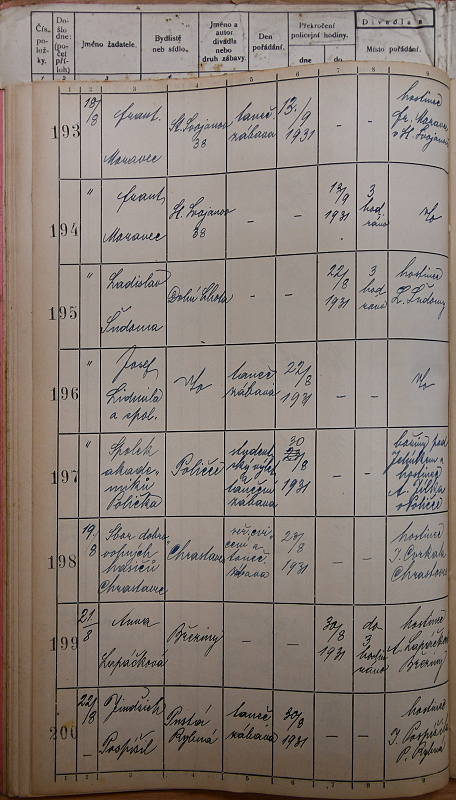 Čís. polož- ky.
Do- šlo dne: (po- čet pří- loh)
Jméno žadatele.
Bydliště neb sídlo.
Jméno a autor divadla nebo druh zábavy.
Den pořádání.
Překročení policejní hodiny.
dne
do
Divadla a
Místo pořádání.
1 2 3 4 5 6 7 8 9
193
18/8
Frant.
Moravec
St. Svojanov
38
taneč.
zábava
13./9
1931
–
–
hostinec
Fr. Morave
v St. Svojanov
194
"
Frant.
Moravec
St. Svojanov
38
–
–
13/9
1931
3
hod
ráno
195
"
Ladislav
Šudoma
Dolní Lhota
–
–
22/8
1931
3
hod
ráno
hostinec
L. Šudomy
196
"
Josef
Lidmila
a spol.
taneč.
zábava
22/8
1931
–
–
197
"
Spolek
akade-
miků
Polička
Poličce
taneční
zábava
30
23/8
1931
–
–
hostince
v Poličce
198
19/8
Sbor dobro-
volných
hasičů
Chrastavec
Chrastavec
veř. cvi-
čení a
taneč.
zábava
23/8
1931
–
–
hostinec
Chrastavec
199
21/8
Anna
Lopáčková
Březiny
–
–
30/8
1931
do
3
hodin
ráno
hostinec
A. Lopáčková
Březiny
200
22/8
–
Jindřich
Pospíšil
Pustá
Rybná
taneč.
zábava
30/8
1931
–
–
hostinec
J. Pospíšila
P. Rybná
1 2 3 4 5 6 7 8 9